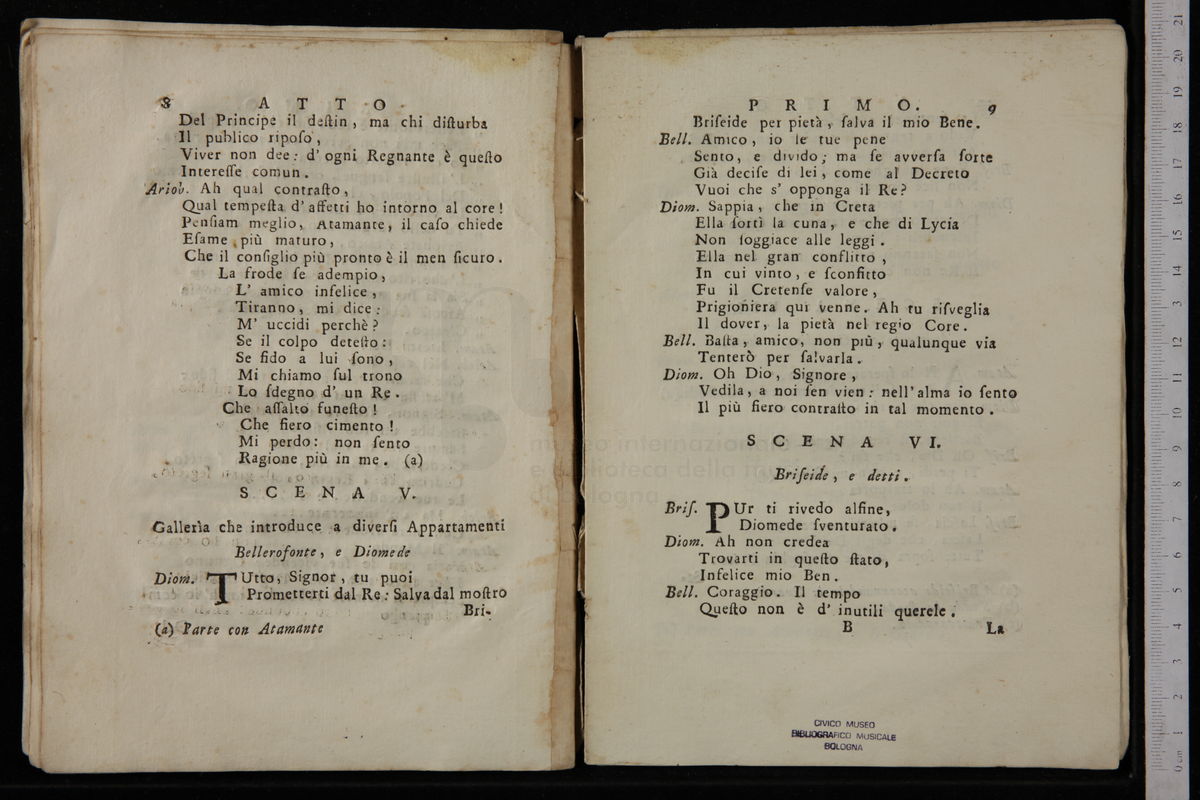 8 ATTO
Del Principe il deſtin, ma chi diſturba
Il publico ripoſo,
Viver non dee: d' ogni Regnante è queſto
Intereſſe comun.
Ariob. Ah qual contraſto,
Qual tempeſta d' affetti ho intorno al core!
Penſiam meglio, Atamante, il caſo chiede
Eſame più maturo,
Che il conſiglio più pronto è il men ſicuro.
La frode ſe adempio,
L' amico infelice,
Tiranno, mi dice:
M' uccidi perchè?
Se il colpo deteſto:
Se fido a lui ſono,
Mi chiamo ſul trono
Lo ſdegno d' un Re.
Che aſſalto funeſto!
Che fiero cimento!
Mi perdo: non ſento
Ragione più in me. (a)
SCENA V.
Gallerìa che introduce a diverſi Appartamenti
Bellerofonte, e Diomede
Diom. TUtto, Signor, tu puoi
Prometterti dal Re: Salva dal moſtro
Bri-
(a) Parte con Atamante
PRIMO. 9
Briſeide per pietà, ſalva il mio Bene.
Bell. Amico, io le tue pene
Sento, e divido; ma ſe avverſa ſorte
Già deciſe di lei, come al Decreto
Vuoi che s' opponga il Re?
Diom. Sappia, che in Creta
Ella ſortì la cuna, e che di Lycia
Non ſoggiace alle leggi.
Ella nel gran conflitto,
In cui vinto, e ſconfitto
Fu il Cretenſe valore,
Prigioniera qui venne. Ah tu riſveglia
Il dover, la pietà nel regio Core.
Bell. Baſta, amico, non più, qualunque via
Tenterò per ſalvarla.
Diom. Oh Dio, Signore,
Vedila, a noi ſen vien: nell' alma io ſento
Il più fiero contraſto in tal momento.
SCENA VI.
Briſeide, e detti.
Briſ. PUr ti rivedo alfine,
Diomede ſventurato.
Diom. Ah non credea
Trovarti in queſto ſtato,
Infelice mio Ben.
Bell. Coraggio. Il tempo
Queſto non è d' inutili querele.
B La
CIVICO MUSEO
BIBLIOGRAFICO MUSICALE
BOLOGNA
museo internazionale
e biblioteca della musica
di bologna
0 cm 1 2 3 4 5 6 7 8 9 10 11 12 13 14 15 16 17 18 19 20 21